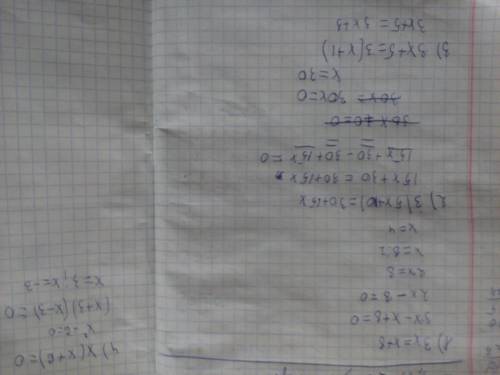 1) 3x=x+8
3x-x+8=0
2x-8=0
2x=8
x=8:2
x=4
2) 3(5x+10)=30+15x
15x+30=30+15x
15x+30-30+15x=0
30x=0
x=30
3) 3x+5=3(x+1)
3x+5=3x+3
(x+3)(x-3)=0
x=3; x=-3